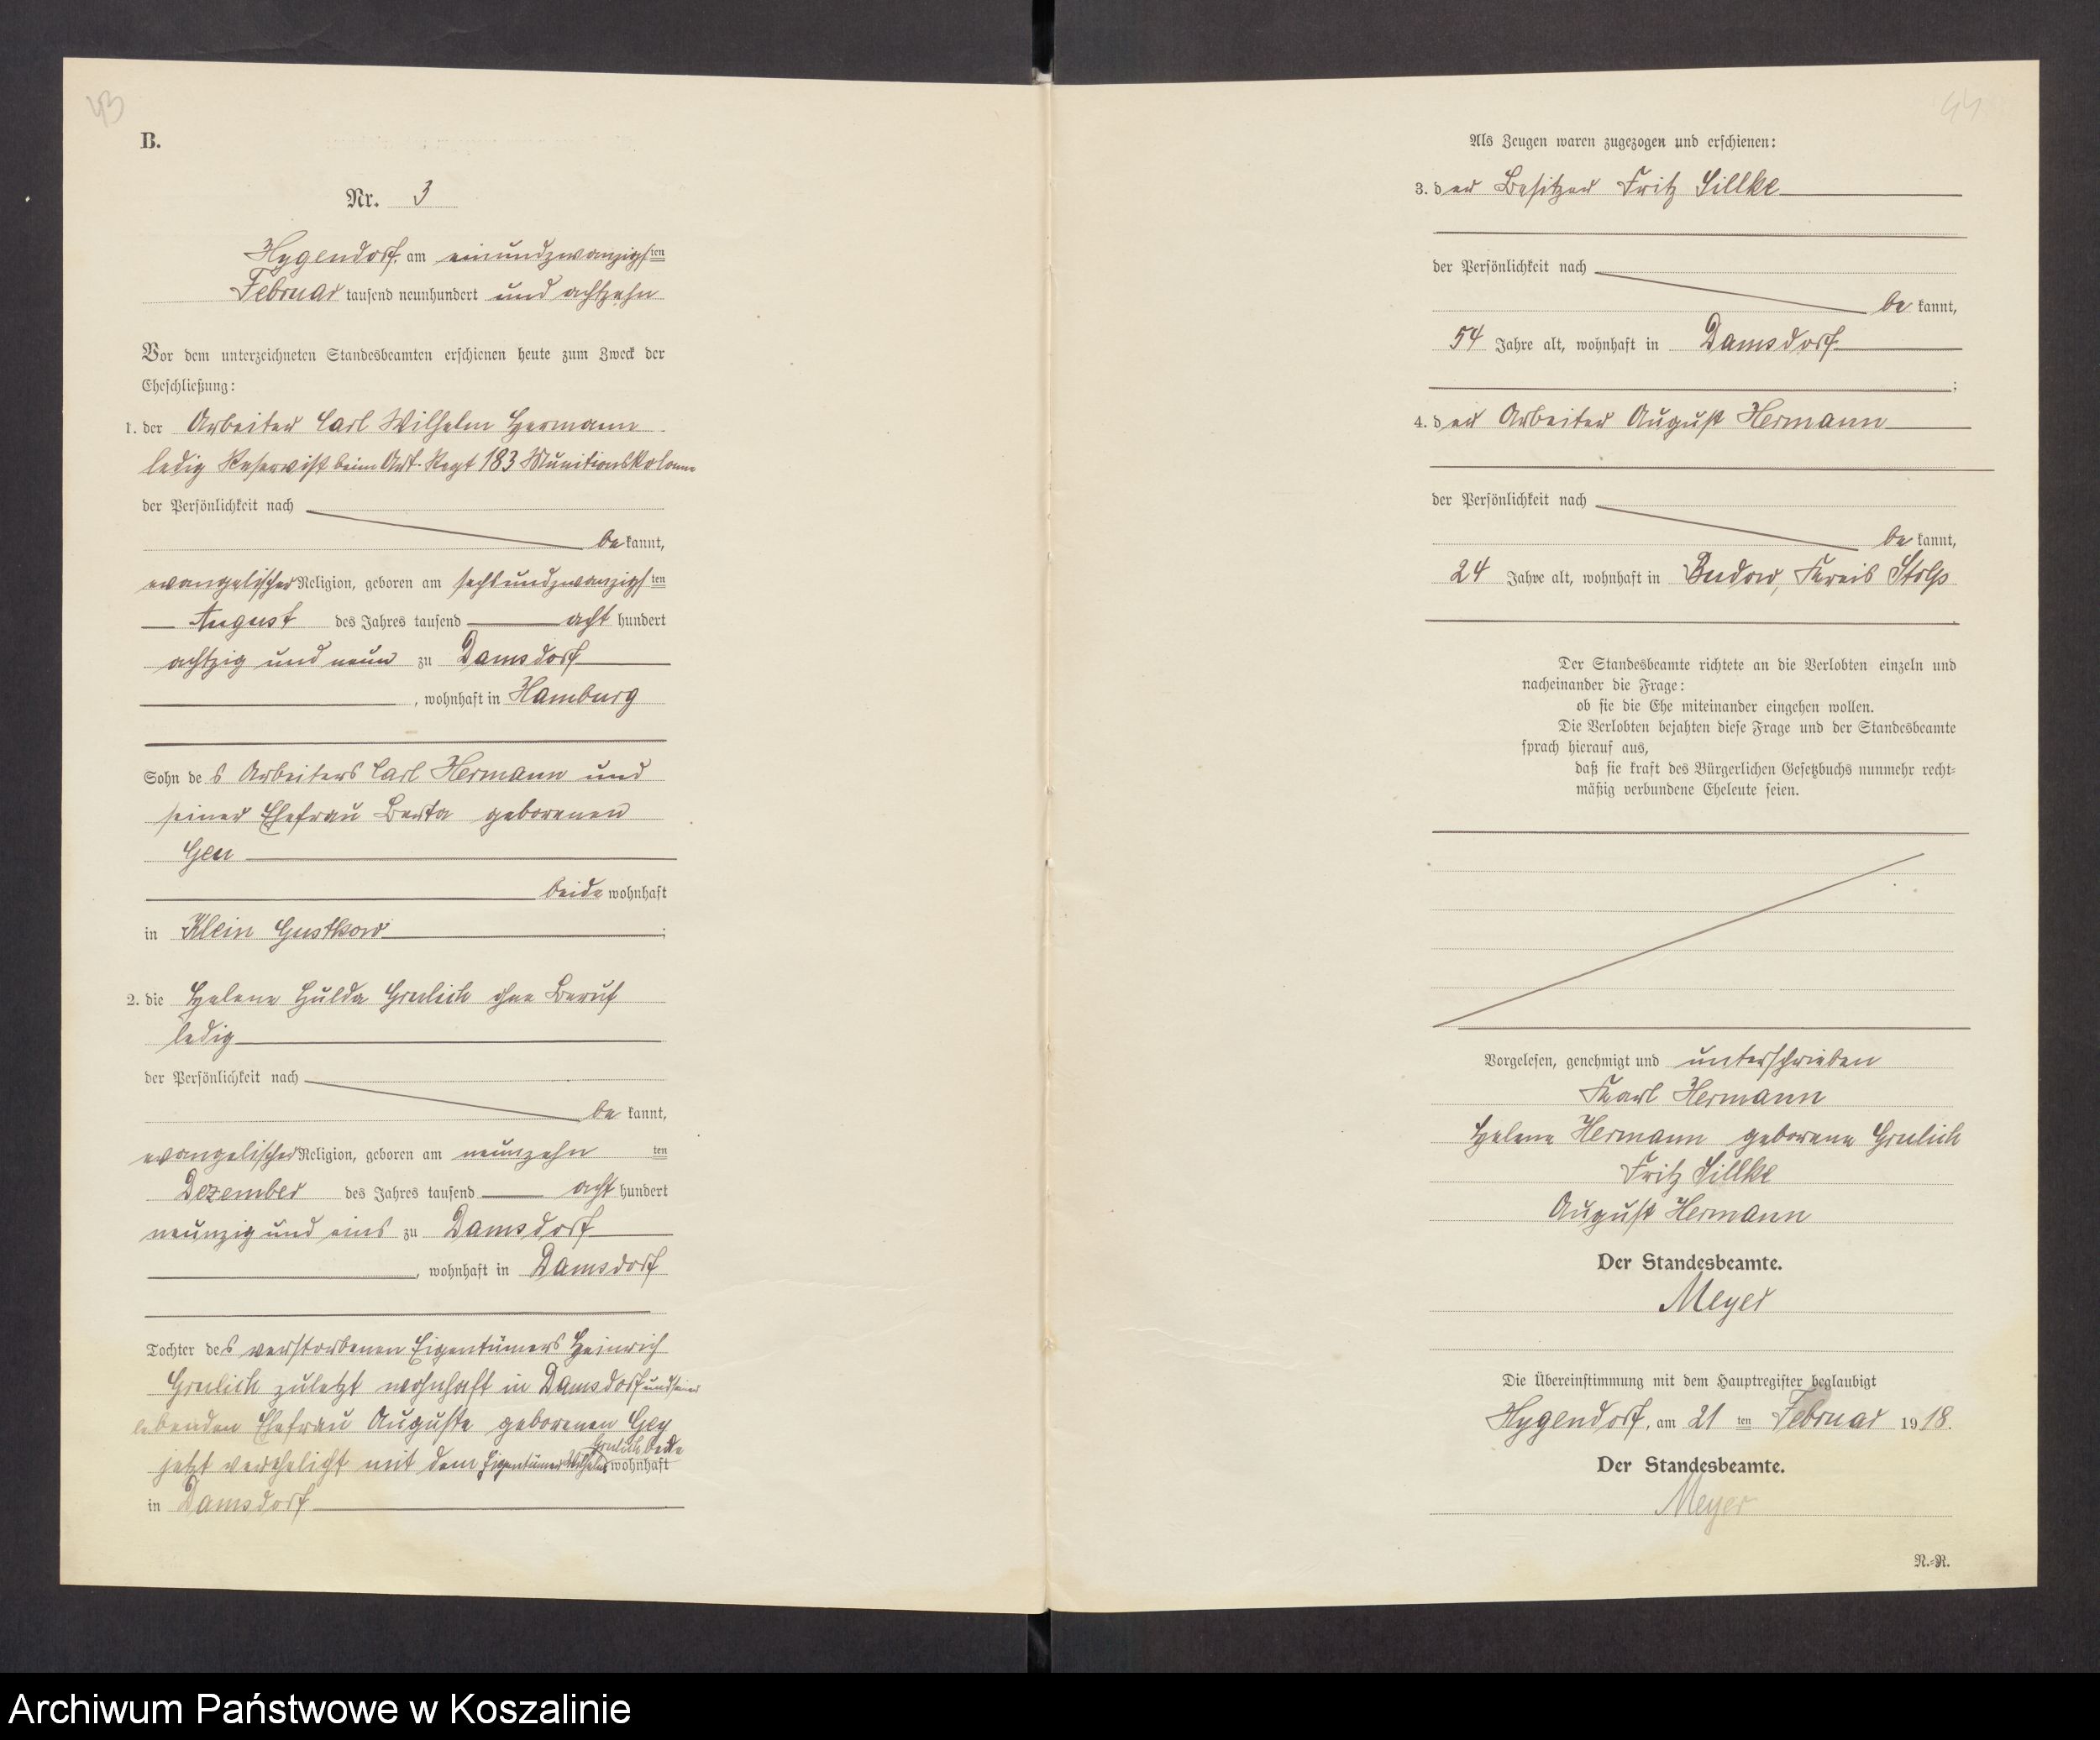 43
B.
Nr. 3
Hygendorf, am einundzwanzigsten
Februar tausend neunhundert und achtzehn
Vor dem unterzeichneten Standesbeamten erschienen heute zum Zweck der
Eheschließung:
1. der Arbeiter Carl Wilhelm Hermann
ledig Reservist beim Art. Regt 183 Munitionskolonne
der Persönlichkeit nach
bekannt,
evangelischer Religion, geboren am sechsundzwanzigsten
August des Jahres tausend acht hundert
achtzig und neun zu Damsdorf
, wohnhaft in Hamburg
Sohn des Arbeiters Carl Hermann und
seiner Ehefrau Berta geborenen
Gen
beide wohnhaft
in Klein Gustkow ;
2. die Helene Hulda Grulich ohne Beruf
ledig
der Persönlichkeit nach
bekannt,
evangelischer Religion, geboren am neunzehnten
Dezember des Jahres tausend acht hundert
neunzig und eins zu Damsdorf
, wohnhaft in Damsdorf
Tochter des verstorbenen Eigentümers Heinrich
Grulich zuletzt wohnhaft in Damsdorf und seiner
lebenden Ehefrau Auguste geborenen Gey
jetzt verehelicht mit dem Eigentümer Wilhelm Grulich beide wohnhaft
in Damsdorf
44
Als Zeugen waren zugezogen und erschienen:
3. der Besitzer Fritz Lillke
der Persönlichkeit nach
bekannt,
54 Jahre alt, wohnhaft in Damsdorf
;
4. der Arbeiter August Hermann
der Persönlichkeit nach
bekannt,
24 Jahre alt, wohnhaft in Budow, Kreis Stolp
.
Der Standesbeamte richtete an die Verlobten einzeln und
nacheinander die Frage:
ob sie die Ehe miteinander eingehen wollen.
Die Verlobten bejahten diese Frage und der Standesbeamte
sprach hierauf aus,
daß sie kraft des Bürgerlichen Gesetzbuchs nunmehr recht-
mäßig verbundene Eheleute seien.
Vorgelesen, genehmigt und unterschrieben
Karl Hermann
Helene Hermann geborene Grulich
Fritz Lillke
August Hermann
Der Standesbeamte.
Meyer
Die Übereinstimmung mit dem Hauptregister beglaubigt
Hygendorf, am 21 ten Februar 1918.
Der Standesbeamte.
Meyer
N.-R.
Archiwum Państwowe w Koszalinie